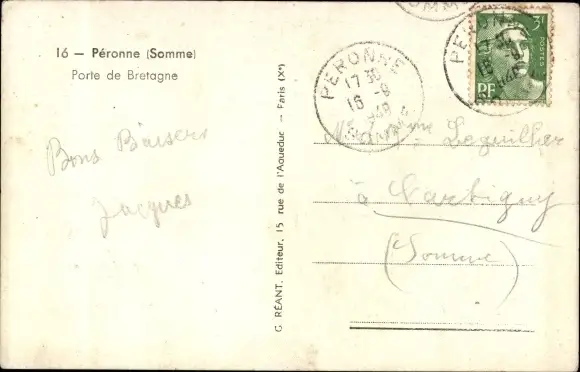 16 — Péronne (Somme)
Porte de Bretagne
Bons Baisers
Jacques
G. RÉANT, Editeur, 15 rue de l'Aqueduc — Paris (Xᵉ)
PÉRONNE
17 30
16 -9
SOMME
3F
POSTES
RF
PÉRONNE
17 30
16 -9
à
(Somme)